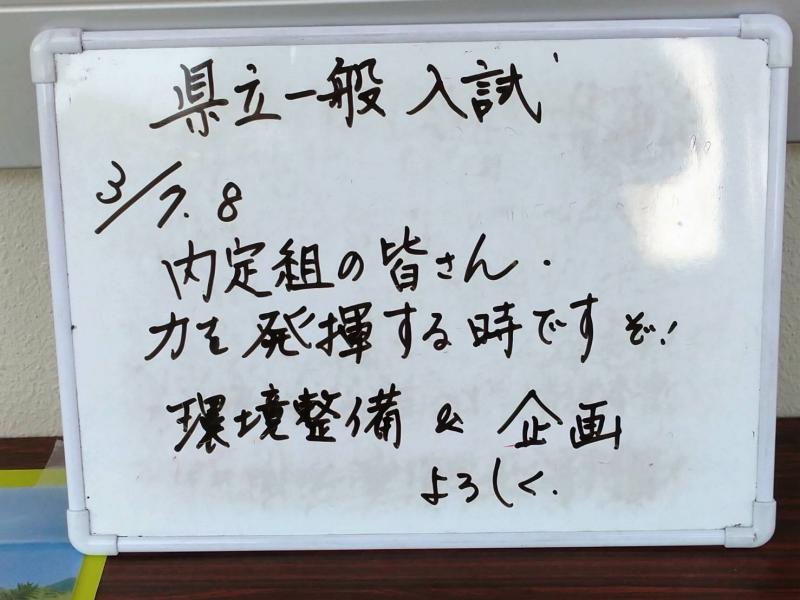 県立一般入試
3/7.8
内定組の皆さん.
力を発揮する時ですぞ!
環境整備 & 企画
よろしく.